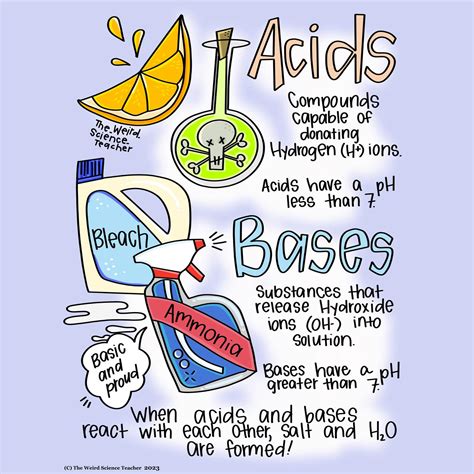 Acids
The Weird
Science
Teacher
Compounds
capable of
donating
Hydrogen (H⁺) ions.
Acids have a pH
less than 7.
Bleach
Bases
Ammonia
Substances that
release Hydroxide
ions (OH-) into
solution.
Basic
and
proud
Bases have a pH
greater than 7.
When acids and bases
react with each other, salt and H₂O
are formed!
(C) The Weird Science Teacher 2023